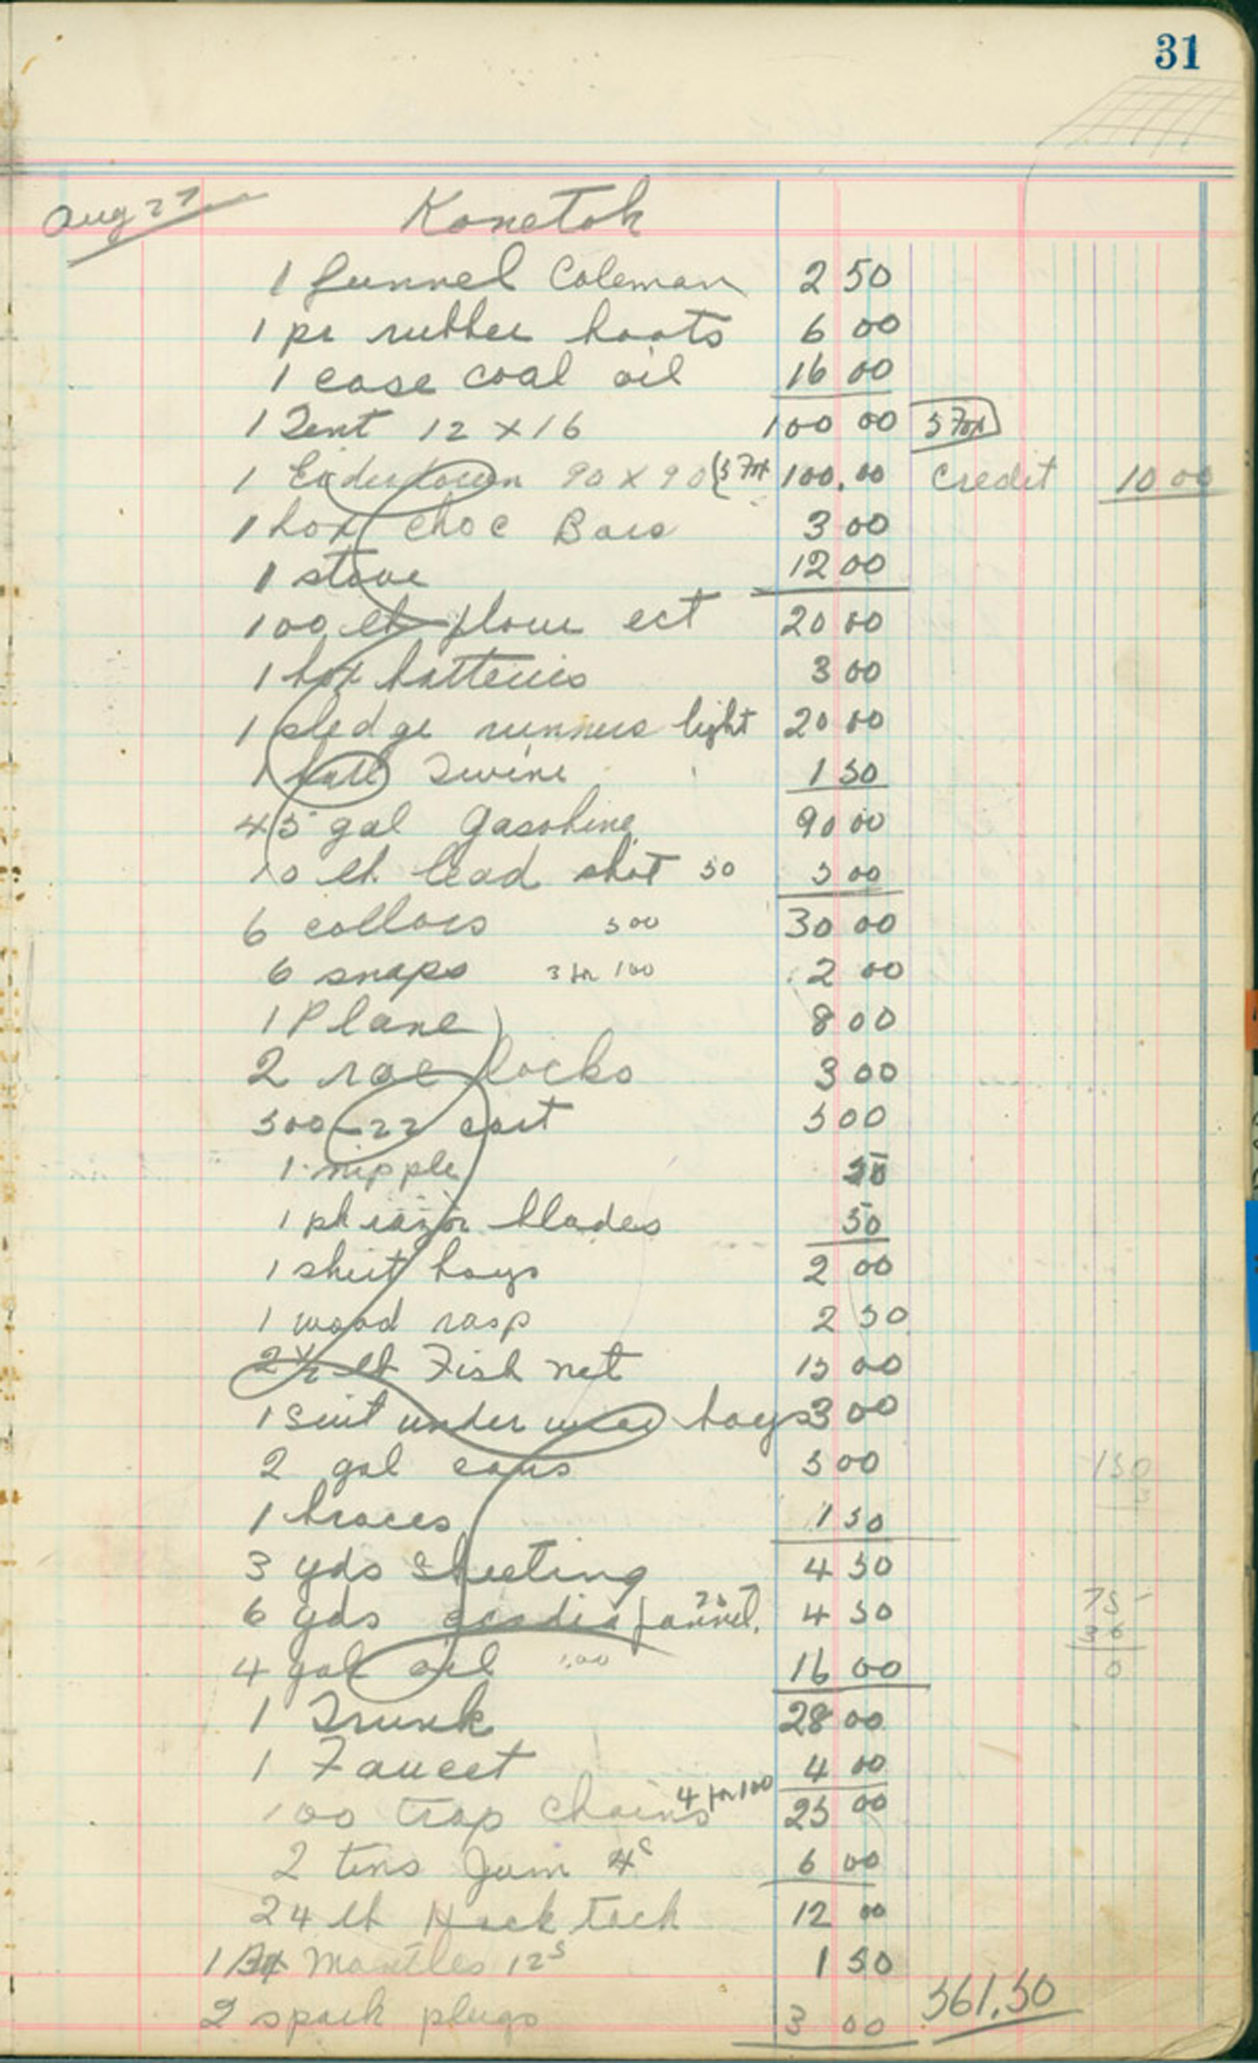 31
Aug 27 Konetok
1 funnel Coleman 2 50
1 pr rubber boots 6 00
1 case coal oil 16 00
1 Tent 12 x 16 100 00 5 Fox
1 Eiderdown 90 x 90 5 Fox 100.00 Credit 10 00
1 box choc Bars 3 00
1 stove 12 00
100 lb flour ect 20 00
1 box batteries 3 00
1 sledge runners light 20 00
1 ball Twine 1 50
45 gal Gasoline 90 00
10 lb. lead shot 50 5 00
6 collars 500 30 00
6 snaps 3 for 100 2 00
1 Plane 8 00
2 rae locks 3 00
500 - 22 cart 5 00
1 nipple
1 pk razor blades 50
1 shirt boys 2 00
1 wood rasp 2 50
2 1/2 lb Fish net 15 00
1 suit under wear boys 3 00
2 gal cans 5 00 150
1 braces 1 50
3 yds Sheeting 4 50
6 yds flannel. 75 4 50 75
4 gal oil 16 00 0
1 Trunk 28 00
1 Faucet 4 00
100 trap chains 4 for 100 25 00
2 tins Jam 4s 6 00
24 lb Hard tack 12 00
1 Bx Mantles 12s 1 50
2 spark plugs 3 00 561.50